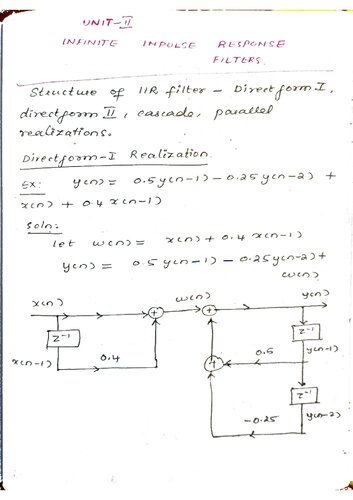 UNIT-II
INFINITE IMPULSE RESPONSE
FILTERS
Structure of IIR filter - Direct form I,
direct form II, cascade, parallel
realizations.
Direct form-I Realization
Ex: y(n) = 0.5y(n-1) - 0.25y(n-2) +
x(n) + 0.4 x(n-1)
Soln:
let w(n) = x(n) + 0.4 x(n-1)
y(n) = 0.5y(n-1) - 0.25y(n-2) +
w(n)
x(n) + w(n) + y(n)
z⁻¹ z⁻¹
x(n-1) 0.4 + 0.5 y(n-1)
z⁻¹
-0.25 y(n-2)